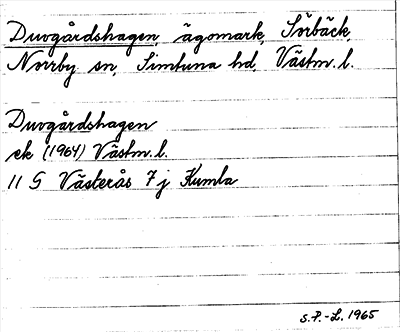 Duvgårdshagen, ägomark, Sörbäck,
Norrby sn, Simtuna hd, Västm. l.
Duvgårdshagen
ek (1964) Västm. l.
11 G Västerås 7 j Kumla
S.P.-L. 1965